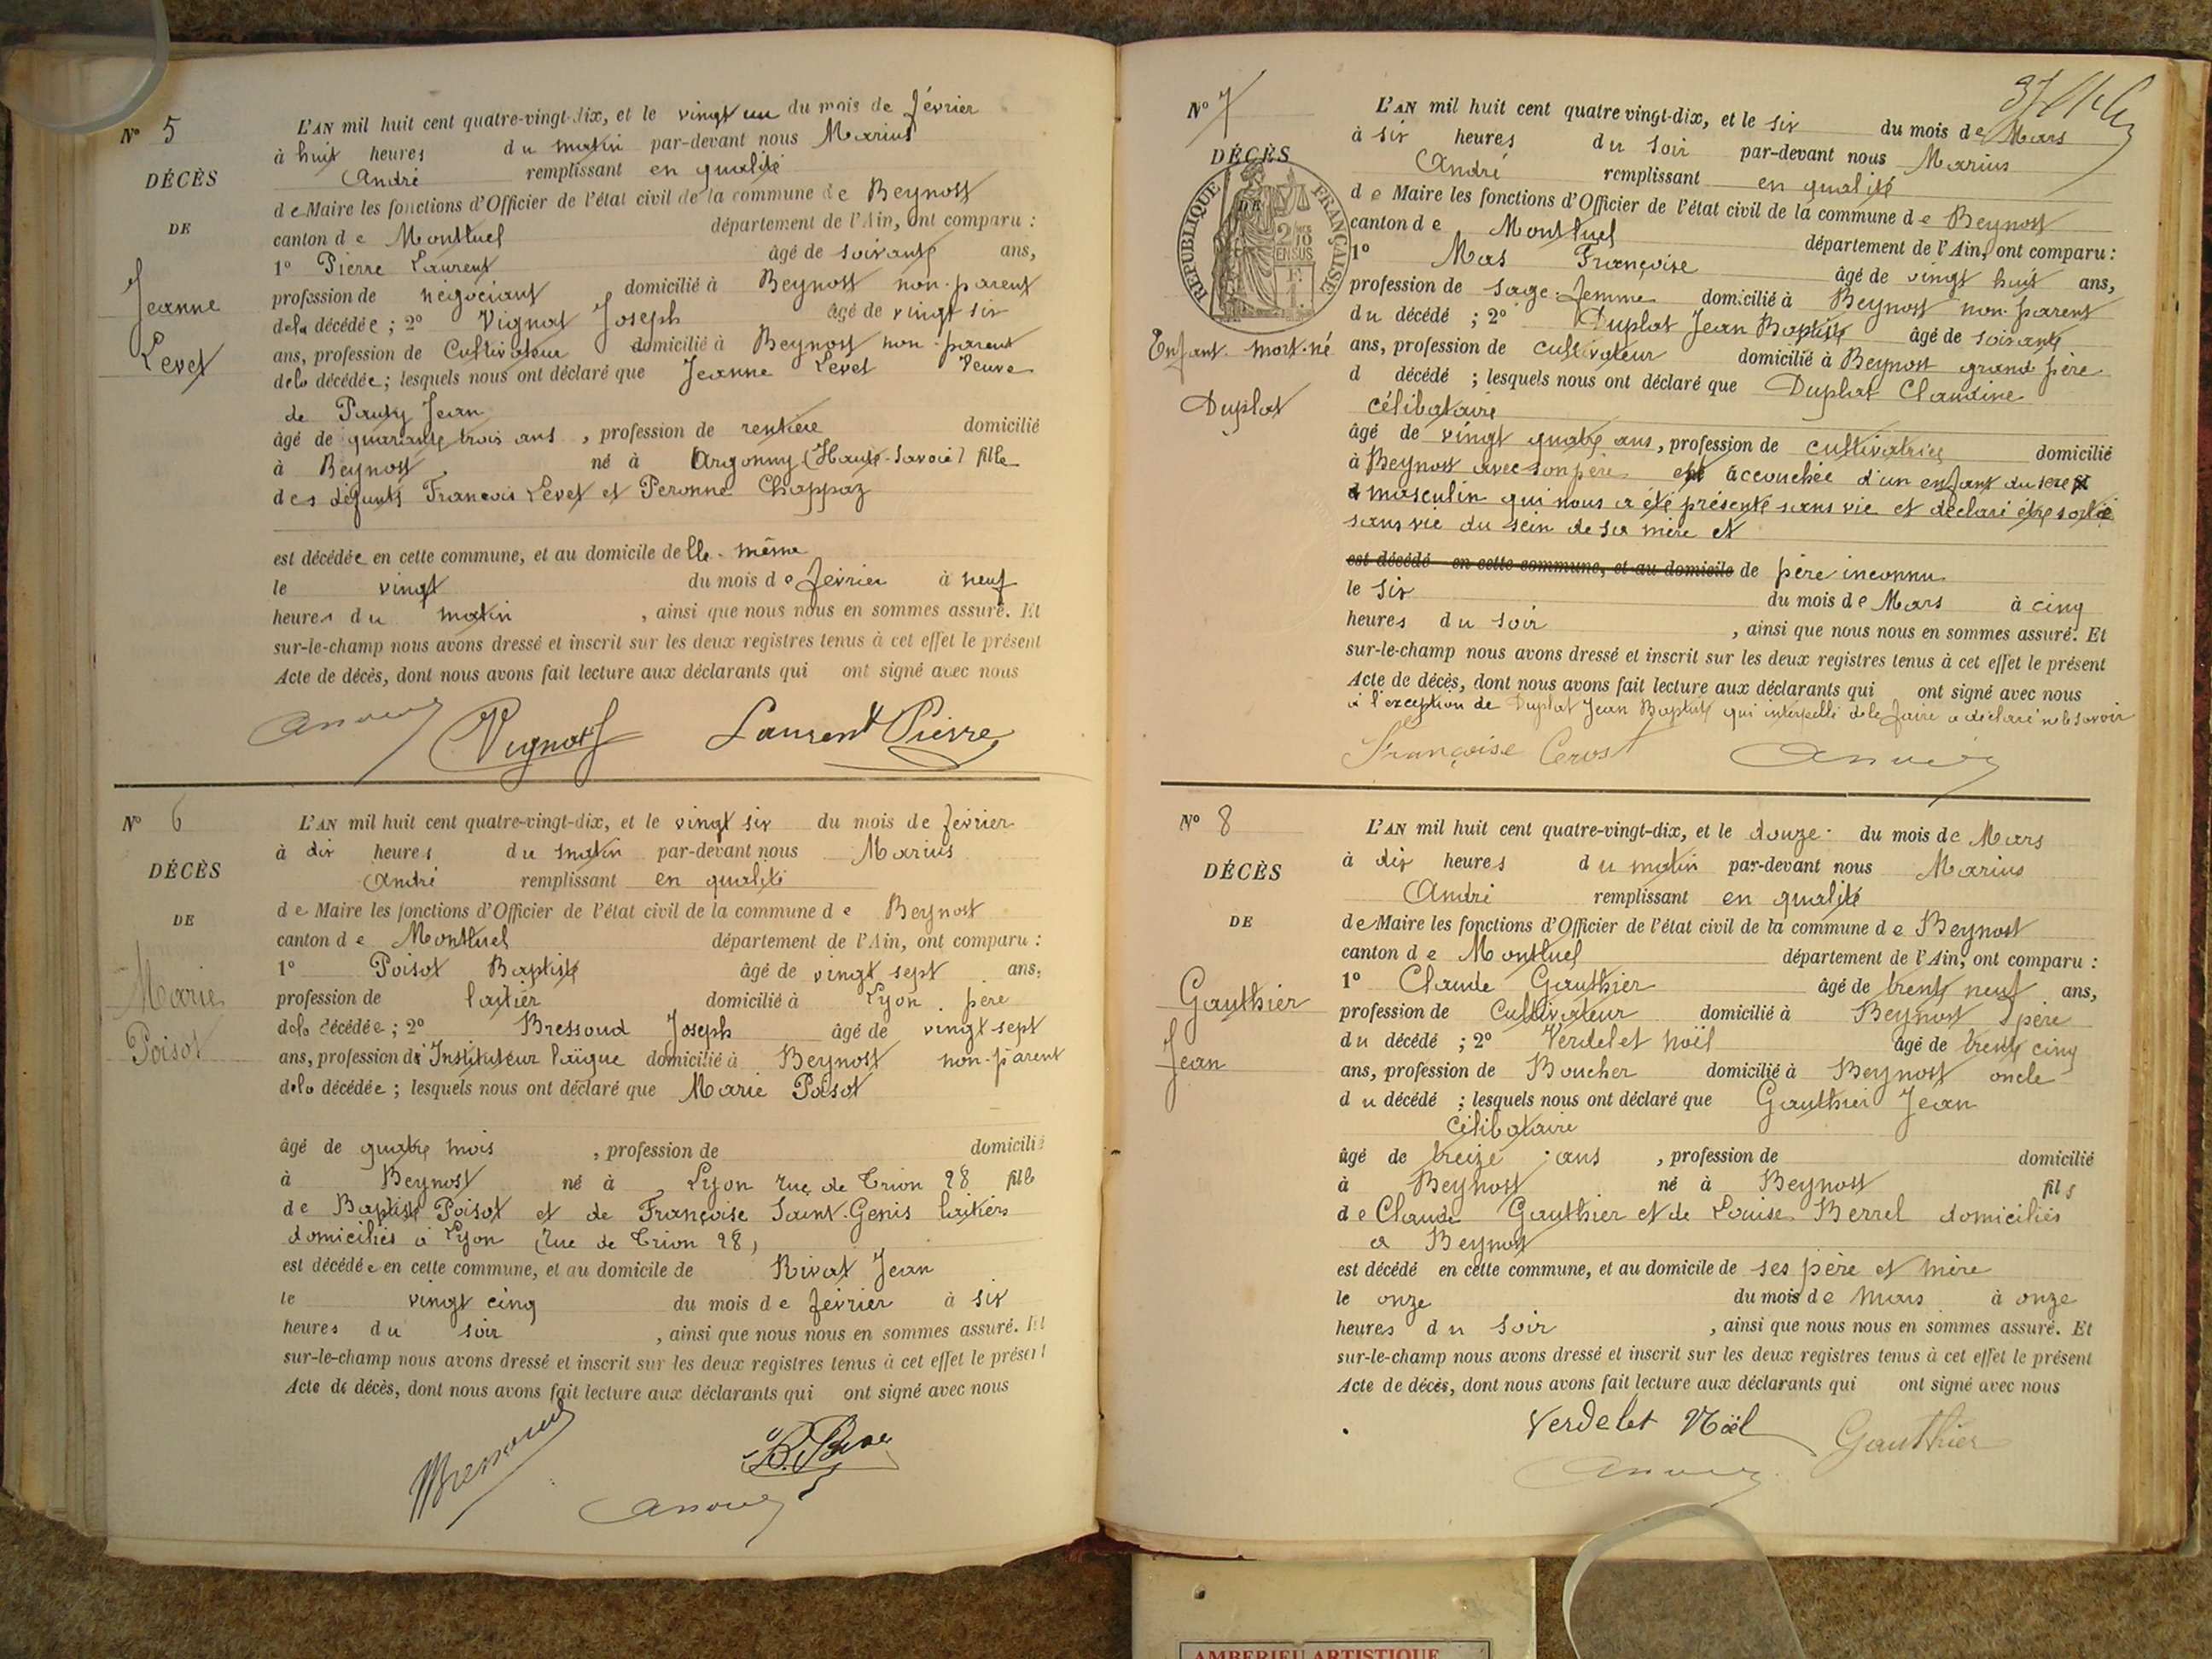 Nº 5
DÉCÈS
DE
Jeanne
Levet
L'AN mil huit cent quatre-vingt-dix, et le vingt un du mois de février
à huit heures du matin par-devant nous Marius
André remplissant en qualité
de Maire les fonctions d'Officier de l'état civil de la commune de Beynost
canton de Montluel département de l'Ain, ont comparu :
1º Pierre Laurent âgé de soixante ans,
profession de négociant domicilié à Beynost non-parent
de la décédée ; 2º Vignat Joseph âgé de vingt six
ans, profession de Cultivateur domicilié à Beynost non-parent
dela décédée ; lesquels nous ont déclaré que Jeanne Levet Veuve
de Pauty Jean
âgé de quarante trois ans , profession de rentière domicilié
à Beynost , né à Argonny (Haute-Savoie) fille
des défunts François Levet et Peronne Chappaz
est décédée en cette commune, et au domicile de lle-même
le vingt du mois de février à neuf
heures du matin , ainsi que nous nous en sommes assuré. Et
sur-le-champ nous avons dressé et inscrit sur les deux registres tenus à cet effet le présent
Acte de décès, dont nous avons fait lecture aux déclarants qui ont signé avec nous
Vignat Laurent Pierre
Nº 6
DÉCÈS
DE
Marie
Poisot
L'AN mil huit cent quatre-vingt-dix, et le vingt six du mois de février
à dix heures du matin par-devant nous Marius
André remplissant en qualité
de Maire les fonctions d'Officier de l'état civil de la commune de Beynost
canton de Montluel département de l'Ain, ont comparu :
1º Poisot Baptiste âgé de vingt sept ans,
profession de laitier domicilié à Lyon père
dela décédée ; 2º Bressoud Joseph âgé de vingt sept
ans, profession d' Instituteur laïque domicilié à Beynost non-parent
dela décédée ; lesquels nous ont déclaré que Marie Poisot
âgé de quatre mois , profession de domicilié
à Beynost né à Lyon rue de Trion 28 fille
de Baptiste Poisot et de Françoise Saint-Genis laitiers
domiciliés à Lyon (rue de Trion 28)
est décédée en cette commune, et au domicile de Rivat Jean
le vingt cinq du mois de février à six
heures du soir , ainsi que nous nous en sommes assuré. Et
sur-le-champ nous avons dressé et inscrit sur les deux registres tenus à cet effet le présent
Acte de décès, dont nous avons fait lecture aux déclarants qui ont signé avec nous
Nº 7
DÉCÈS
DE
RÉPUBLIQUE FRANÇAISE
2/10 EN SUS
Enfant mort-né
Duplat
L'AN mil huit cent quatre vingt-dix, et le six du mois de Mars
à six heures du soir par-devant nous Marius
André remplissant en qualité
de Maire les fonctions d'Officier de l'état civil de la commune de Beynost
canton de Montluel département de l'Ain, ont comparu :
1º Mas Françoise âgé de vingt huit ans,
profession de sage-femme domicilié à Beynost non-parent
du décédé ; 2º Duplat Jean Baptiste âgé de soixante
ans, profession de cultivateur domicilié à Beynost grand père
d décédé ; lesquels nous ont déclaré que Duplat Claudine
célibataire
âgé de vingt quatre ans, profession de cultivatrice domicilié
à Beynost avec son père est accouchée d'un enfant du sexe
masculin qui nous a été présenté sans vie et déclaré être sorti
sans vie du sein de sa mère et
est décédé en cette commune, et au domicile de père inconnu
le six du mois de Mars à cinq
heures du soir , ainsi que nous nous en sommes assuré. Et
sur-le-champ nous avons dressé et inscrit sur les deux registres tenus à cet effet le présent
Acte de décès, dont nous avons fait lecture aux déclarants qui ont signé avec nous
à l'exception de Duplat Jean Baptiste qui interpellé de le faire a déclaré ne le savoir
Françoise
Nº 8
DÉCÈS
DE
Gauthier
Jean
L'AN mil huit cent quatre-vingt-dix, et le douze du mois de Mars
à dix heures du matin par-devant nous Marius
André remplissant en qualité
de Maire les fonctions d'Officier de l'état civil de la commune de Beynost
canton de Montluel département de l'Ain, ont comparu :
1º Claude Gauthier âgé de trente neuf ans,
profession de Cultivateur domicilié à Beynost père
du décédé ; 2º Verdelet Noël âgé de trente cinq
ans, profession de Boucher domicilié à Beynost oncle
du décédé ; lesquels nous ont déclaré que Gauthier Jean
célibataire
âgé de treize ans , profession de domicilié
à Beynost né à Beynost fils
de Claude Gauthier et de Louise Berrel domiciliés
à Beynost
est décédé en cette commune, et au domicile de ses père et mère
le onze du mois de Mars à onze
heures du soir , ainsi que nous nous en sommes assuré. Et
sur-le-champ nous avons dressé et inscrit sur les deux registres tenus à cet effet le présent
Acte de décès, dont nous avons fait lecture aux déclarants qui ont signé avec nous
Verdelet Noël Gauthier
AMBERIEU ARTISTIQUE